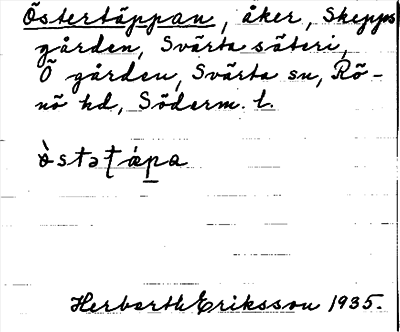 Östertäppan, åker, Skepps
gården, Svärta säteri,
Ö gården, Svärta sn, Rö-
nö hd, Söderm. l.
òstəʈápa
Herbert Eriksson 1935.